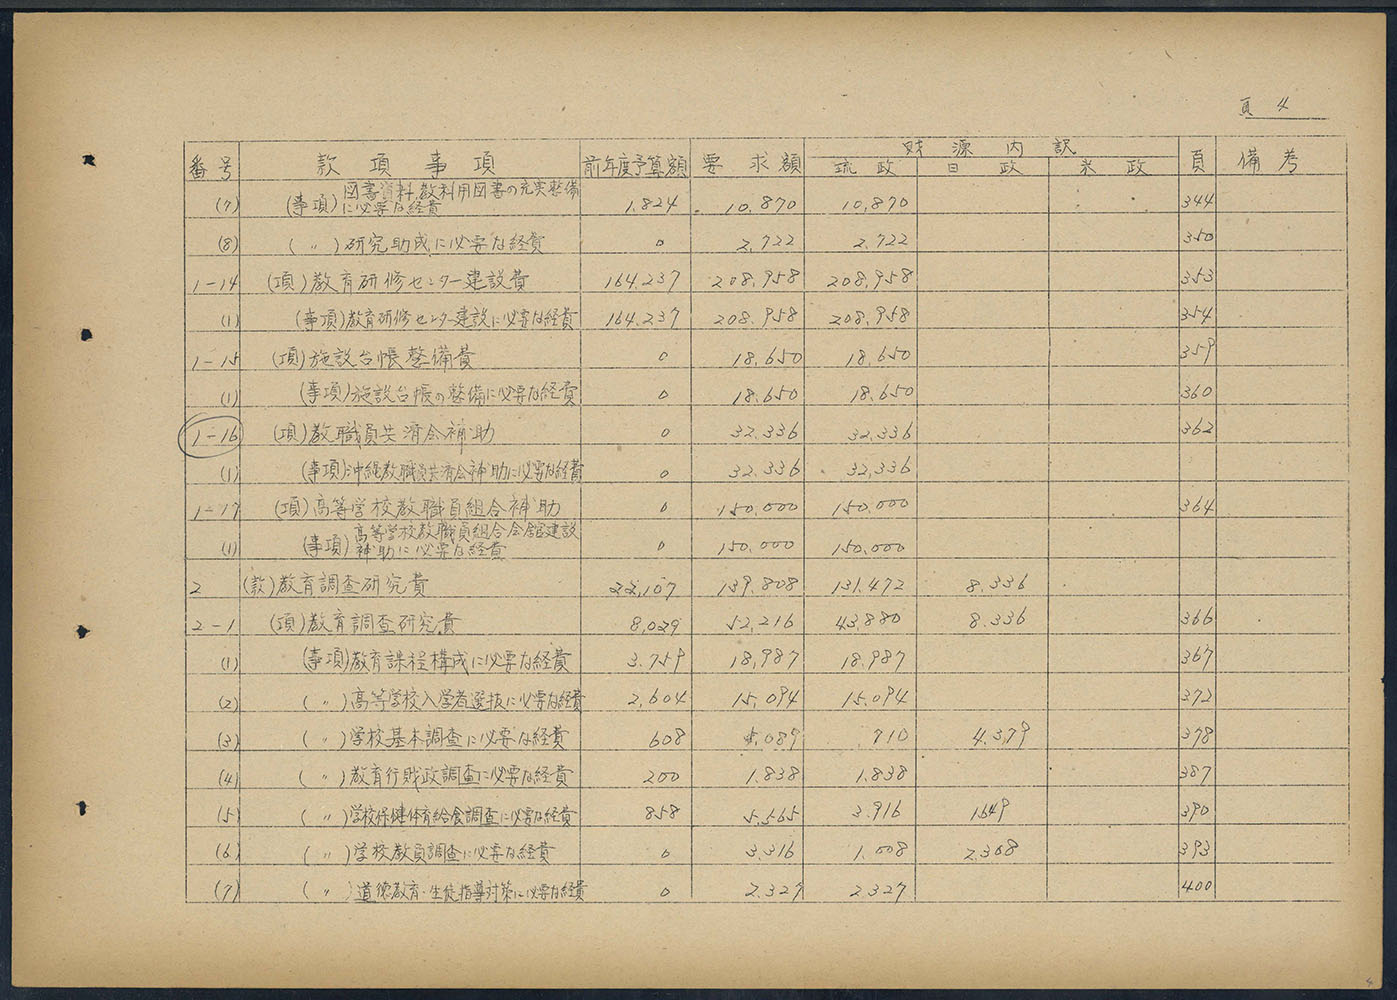 頁 4
番号 款項事項 前年度予算額 要求額 財源内訳 頁 備考
琉政 日政 米政
(7) (事項) 図書資料、教科用図書の充実整備に必要な経費 1,824 10,870 10,870 344
(8) (〃) 研究助成に必要な経費 0 2,722 2,722 350
1-14 (項) 教育研修センター建設費 164,237 208,958 208,958 353
(1) (事項) 教育研修センター建設に必要な経費 164,237 208,958 208,958 354
1-15 (項) 施設台帳整備費 0 18,650 18,650 359
(1) (事項) 施設台帳の整備に必要な経費 0 18,650 18,650 360
1-16 (項) 教職員共済会補助 0 32,336 32,336 362
(1) (事項) 沖縄教職員共済会補助に必要な経費 0 32,336 32,336
1-17 (項) 高等学校教職員組合補助 0 150,000 150,000 364
(1) (事項) 高等学校教職員組合会館建設補助に必要な経費 0 150,000 150,000
2 (款) 教育調査研究費 22,107 139,808 131,472 8,336
2-1 (項) 教育調査研究費 8,029 52,216 43,880 8,336 366
(1) (事項) 教育課程構成に必要な経費 3,759 18,987 18,987 367
(2) (〃) 高等学校入学者選抜に必要な経費 2,604 15,094 15,094 372
(3) (〃) 学校基本調査に必要な経費 608 5,089 710 4,379 378
(4) (〃) 教育行財政調査に必要な経費 200 1,838 1,838 387
(5) (〃) 学校保健体育給食調査に必要な経費 858 5,565 3,916 1649 390
(6) (〃) 学校教員調査に必要な経費 0 3,316 1,008 2,308 393
(7) (〃) 道徳教育・生徒指導対策に必要な経費 0 2,327 2,327 400
4